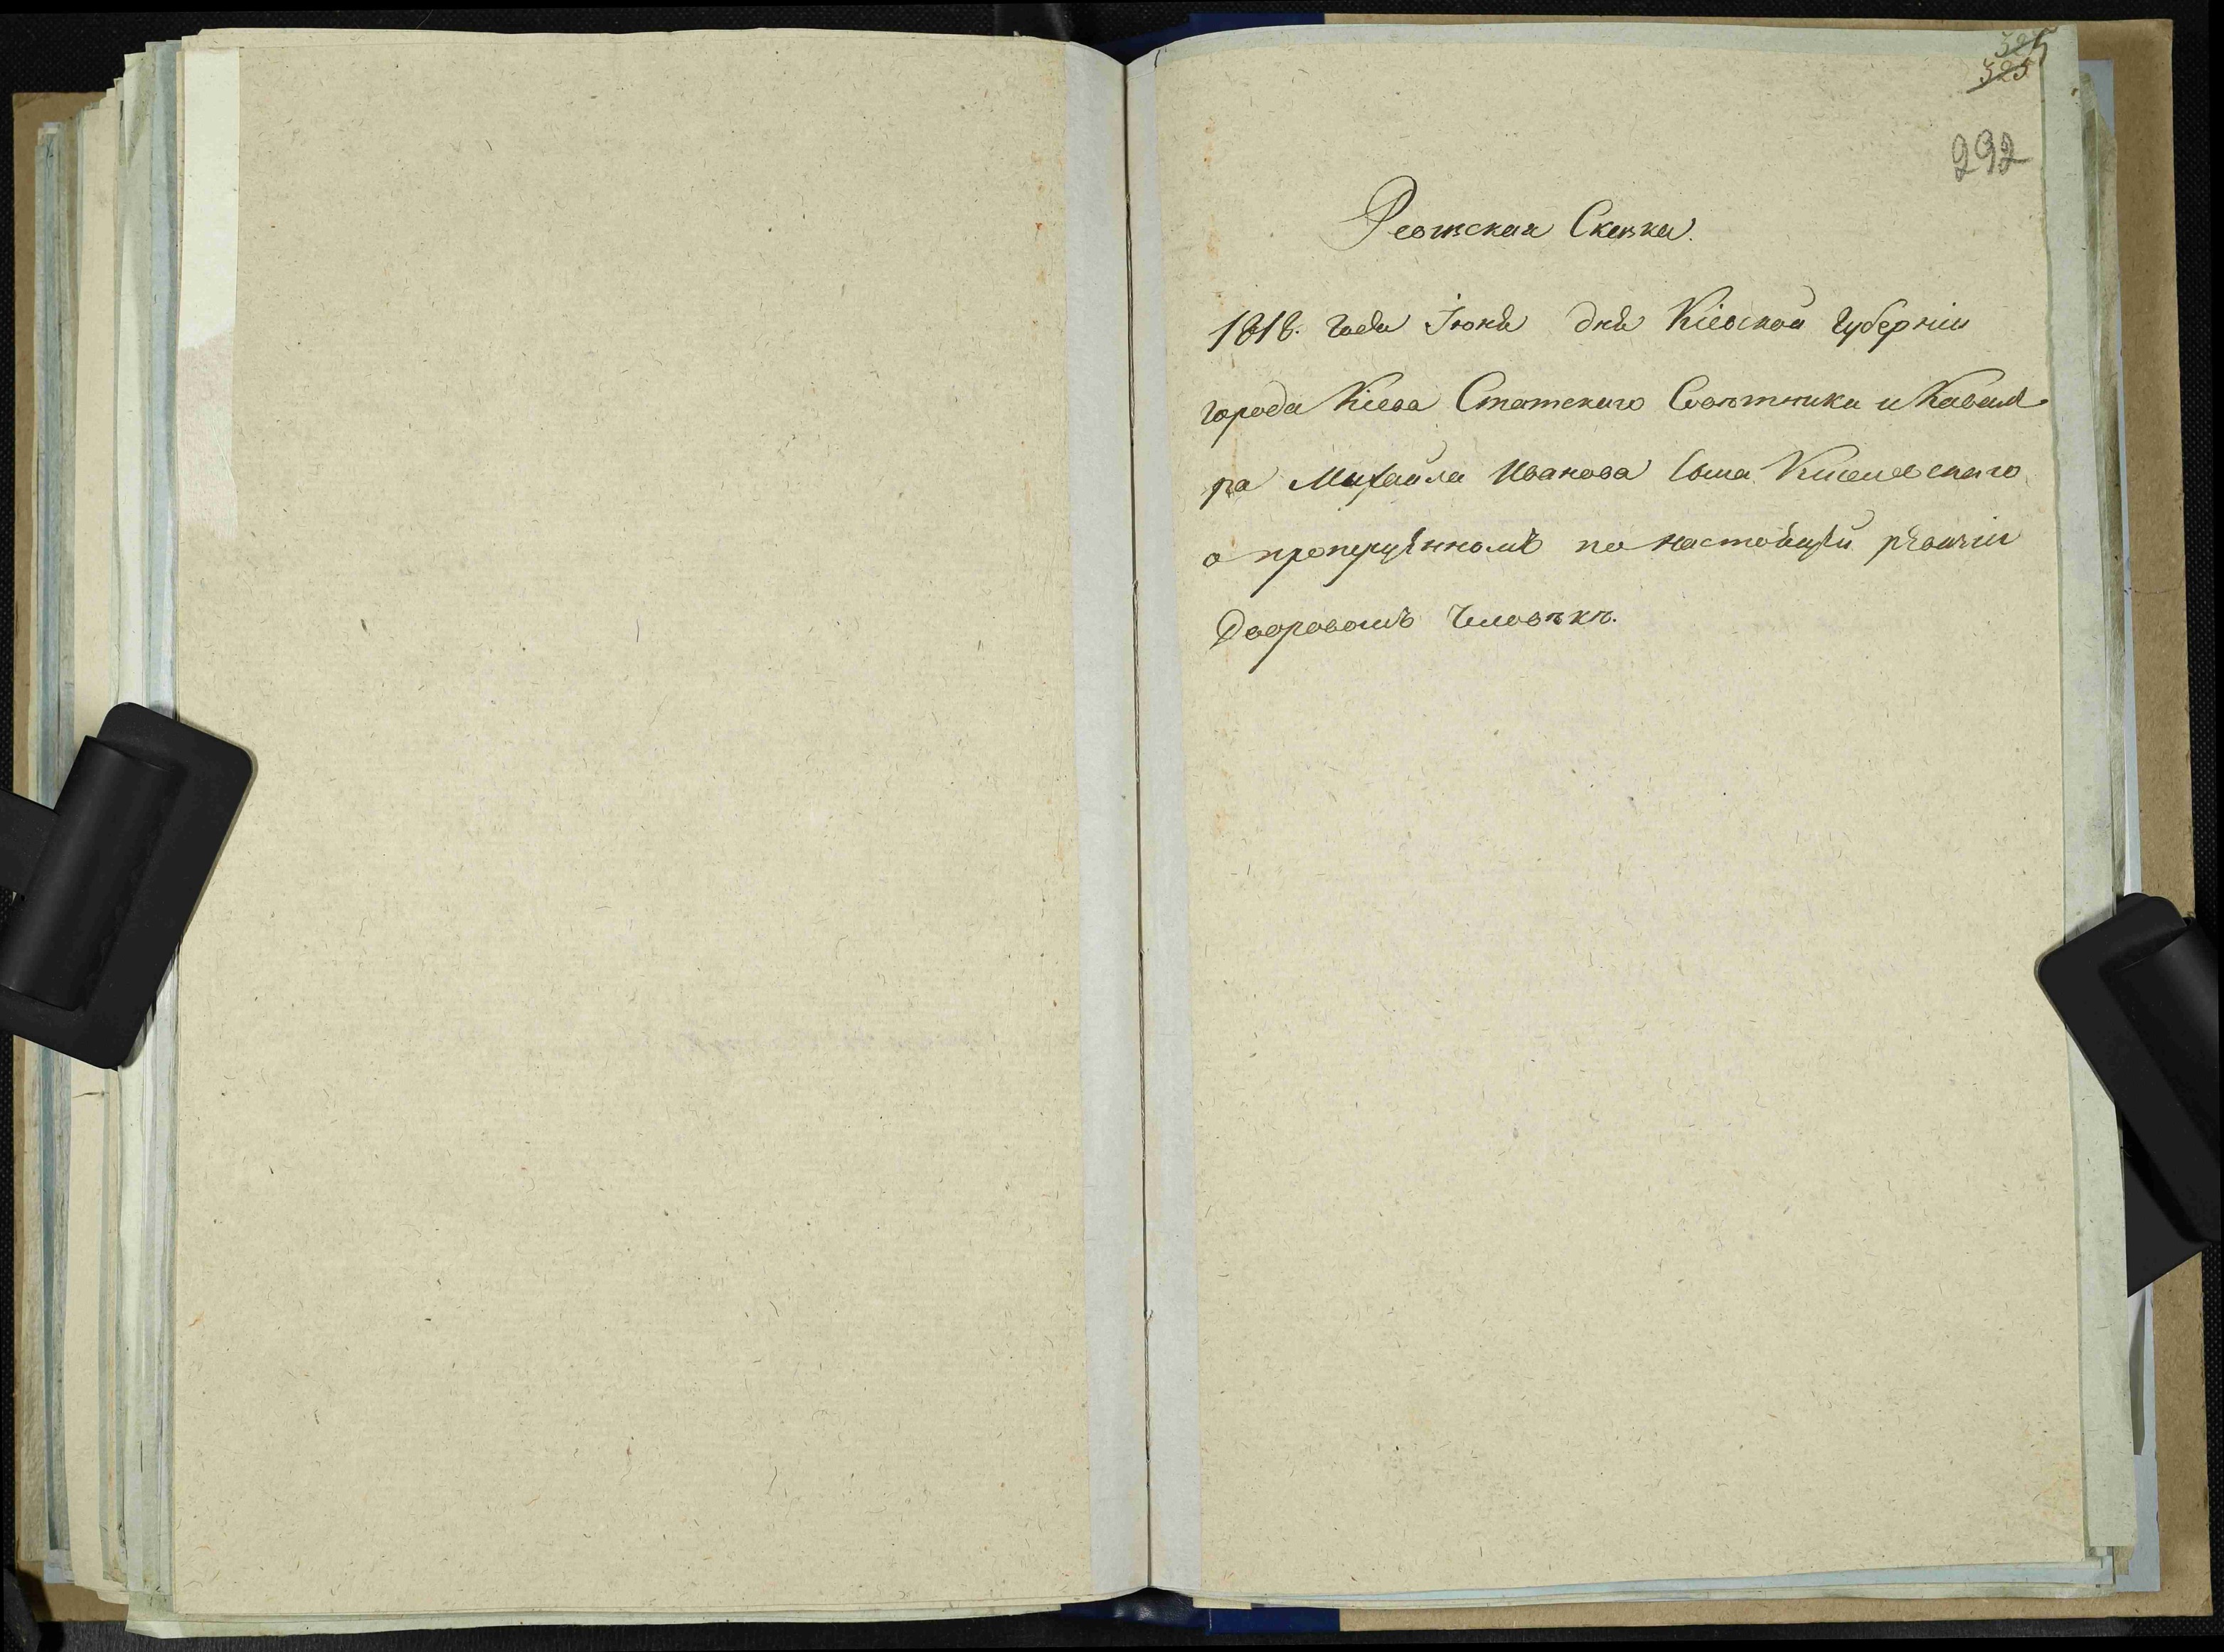 325
325
292
Ревизская Сказка.
1818. года Июня дня Кіевской Губерніи
города Кіева Статскаго Совѣтника и Кавале
ра Михайла Иванова сына
о пропущенномъ по настоящей ревизіи
Дворовомъ Человѣкѣ.